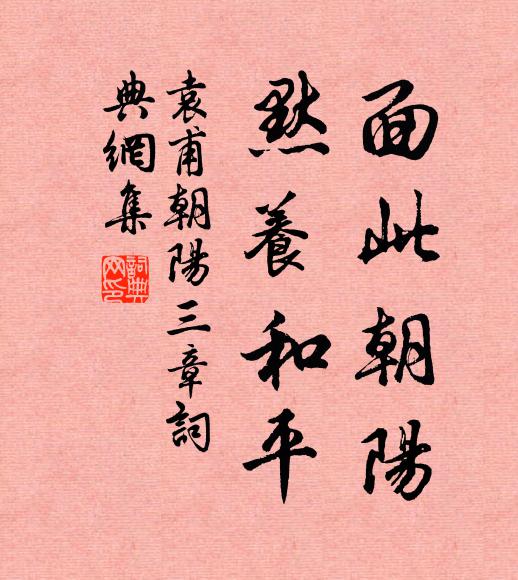 面此朝陽
默養和平
袁甫朝陽三章詞
典網集
詞典網印